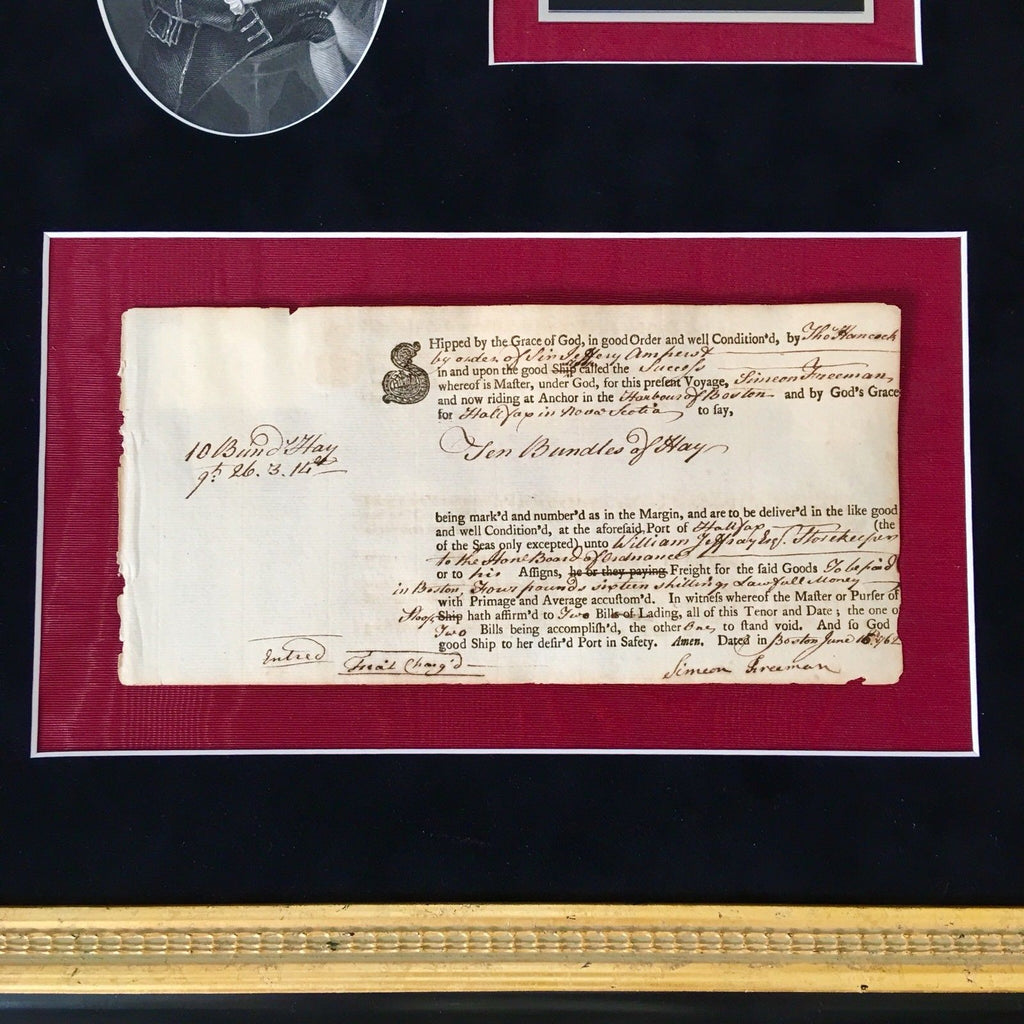 SHipped by the Grace of God, in good Order and well Condition'd, by Thos Hancock
by order of Sir Jeffery Amherst
in and upon the good Ship called the Success
whereof is Master, under God, for this present Voyage, Simeon Freeman
and now riding at Anchor in the Harbour of Boston and by God's Grace
for Hallifax in Nova Scotia to say,
10 Bund's Hay
Ten Bundles of Hay
qt. 26. 3. 14
being mark'd and number'd as in the Margin, and are to be deliver'd in the like good
and well Condition'd, at the aforesaid Port of Hallifax (the
of the Seas only excepted) unto William Jeffray Esq. Storekeeper
to the Honl Board of Ordnance
or to his Assigns, he or they paying Freight for the said Goods To be paid
in Boston, Four pounds sixteen shillings Lawfull Money
with Primage and Average accustom'd. In witness whereof the Master or Purser of
Sloop Ship hath affirm'd to Two Bills of Lading, all of this Tenor and Date; the one of
Two Bills being accomplish'd, the other One, to stand void. And so God
good Ship to her desir'd Port in Safety. Amen. Dated in Boston June 16 1762
Entred Frei't Charg'd Simeon Freeman